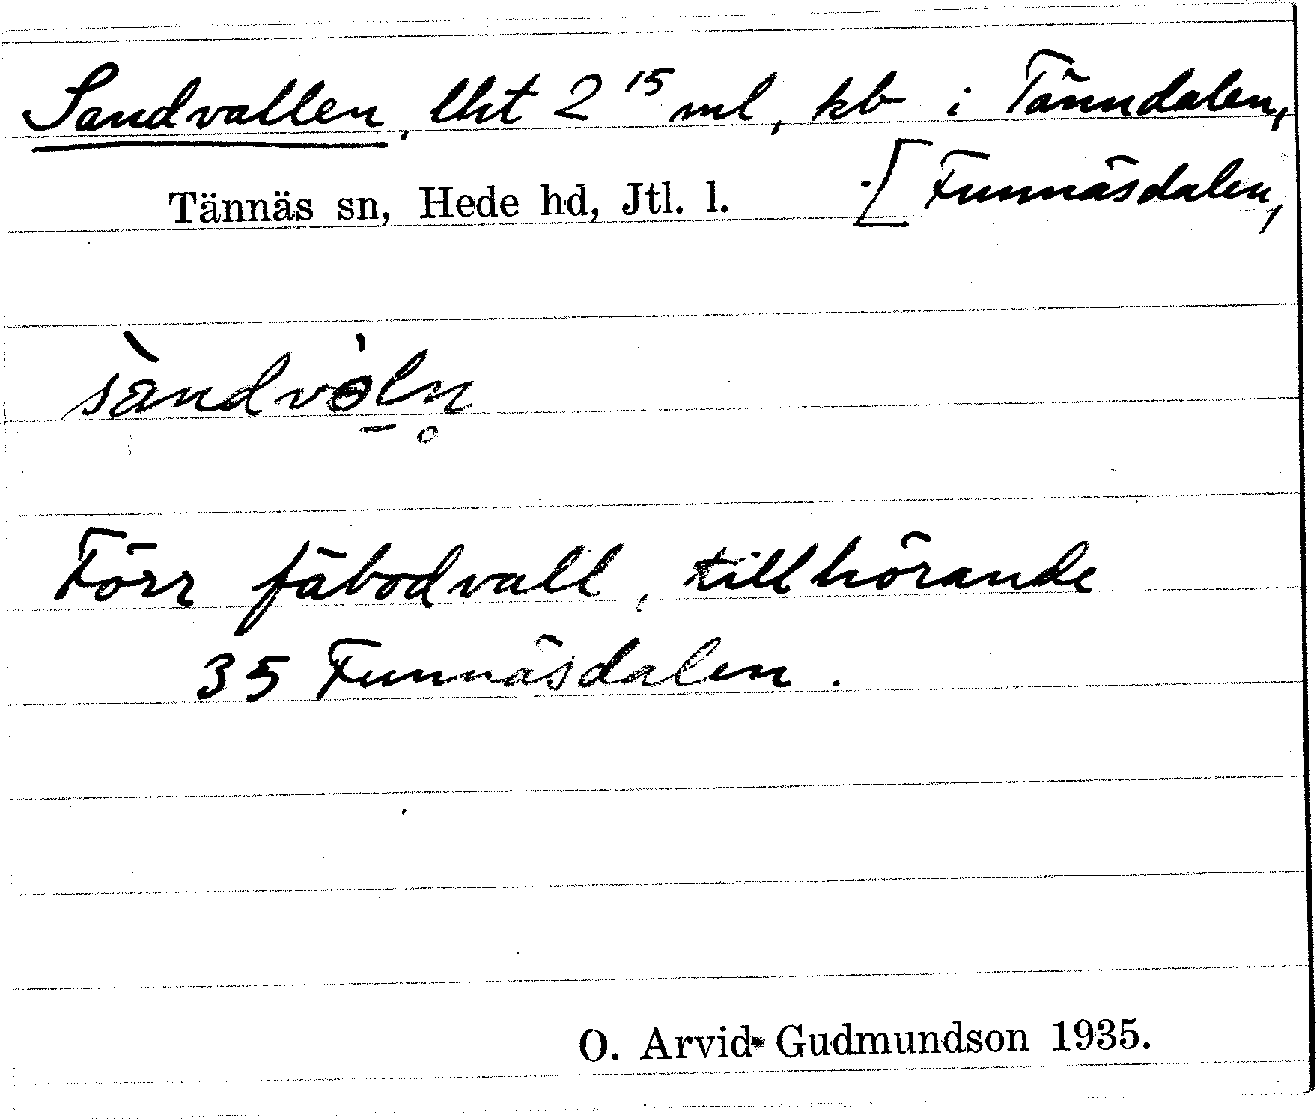 Sandvallen, lht 2¹⁵ ml, kb i Tänndalen,
Tännäs sn, Hede hd, Jtl. l. [Funnäsdalen,
sàndvòln̥
Förr fäbodvall, tillhörande
35 Funnäsdalen.
O. Arvid Gudmundson 1935.